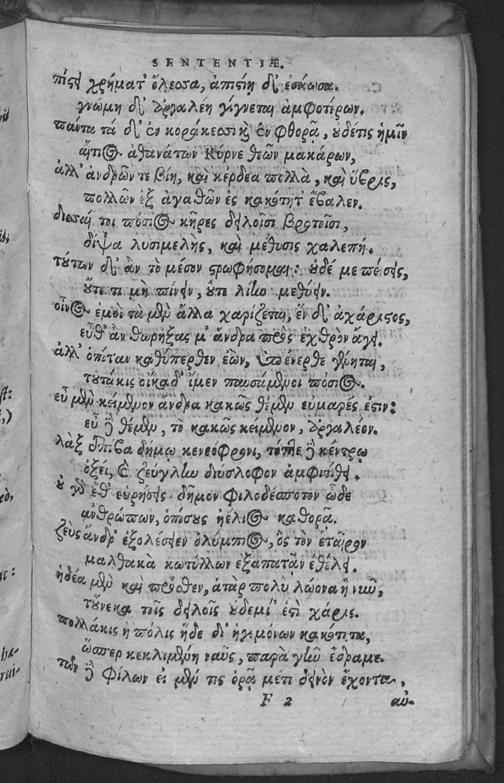 SENTENTIÆ.
πίστει χρήματ' ὄλεσσα, ἀπιστίῃ δ' ἐσάωσα.
γνώμη δ' ἀργαλέη γίγνεται ἀμφοτέρων.
πάντα τά δ' ἐν κοράκεσσι καὶ ἐν φθορᾷ, οὐδέ τις ἡμῖν
αἴτιος ἀθανάτων Κύρνε θεῶν μακάρων,
ἀλλ' ἀνδρῶν τε βίη, καὶ κέρδεα πολλὰ, καὶ ὕβρις,
πολλῶν ἐξ ἀγαθῶν ἐς κακότητ' ἔβαλεν.
δισσαί τοι πόσιος κῆρες δειλοῖσι βροτοῖσι,
δίψα λυσιμελὴς, καὶ μέθυσις χαλεπή.
τούτων δ' ἂν τὸ μέσον στρωφήσομαι: οὐδέ με πείσεις,
οὔτε τι μὴ πίνειν, οὔτε λίην μεθύειν.
οἶνος ἐμοὶ τὰ μὲν ἄλλα χαρίζεται, ἓν δ' ἀχάριστος,
εὖτ' ἂν θωρήξας μ' ἄνδρα πρὸς ἐχθρὸν ἄγει.
ἀλλ' ὁπόταν καθύπερθεν ἐὼν, ὑπένερθε γένηται,
τουτάκις οἴκαδ' ἴμεν παυσάμενοι πόσιος.
εὖ μὲν κείμενον ἄνδρα κακῶς θέμεν εὐμαρές ἐστιν:
εὖ δὲ θέμεν, τὸ κακῶς κείμενον, ἀργαλέον.
λὰξ ἐπίβα δήμῳ κενεόφρονι, τύπτε δὲ κέντρῳ
ὀξεῖ, καὶ ζεύγλην δύσλοφον ἀμφιτίθει.
οὐ γὰρ ἔθ' εὑρήσεις δῆμον φιλοδέσποτον ὧδε
ἀνθρώπων, ὁπόσους ἠέλιος καθορᾷ.
ζεὺς ἄνδρ' ἐξολέσειεν ὀλύμπιος, ὃς τὸν ἑταῖρον
μαλθακὰ κωτίλλων ἐξαπατᾶν ἐθέλει.
ᾔδεα μὲν καὶ πρόσθεν, ἀτὰρ πολὺ λώονα ἢ νῦν,
τούνεκα τοῖς δειλοῖς οὐδεμί' ἐστὶ χάρις.
πολλάκις ἡ πόλις ἥδε δι' ἡγεμόνων κακότητα,
ὥσπερ κεκλιμένη ναῦς, παρὰ γῆν ἔδραμε.
τῶν δὲ φίλων εἰ μέν τις ὁρᾷ μέ τι δεινὸν ἔχοντα,
F 2 αὐ-